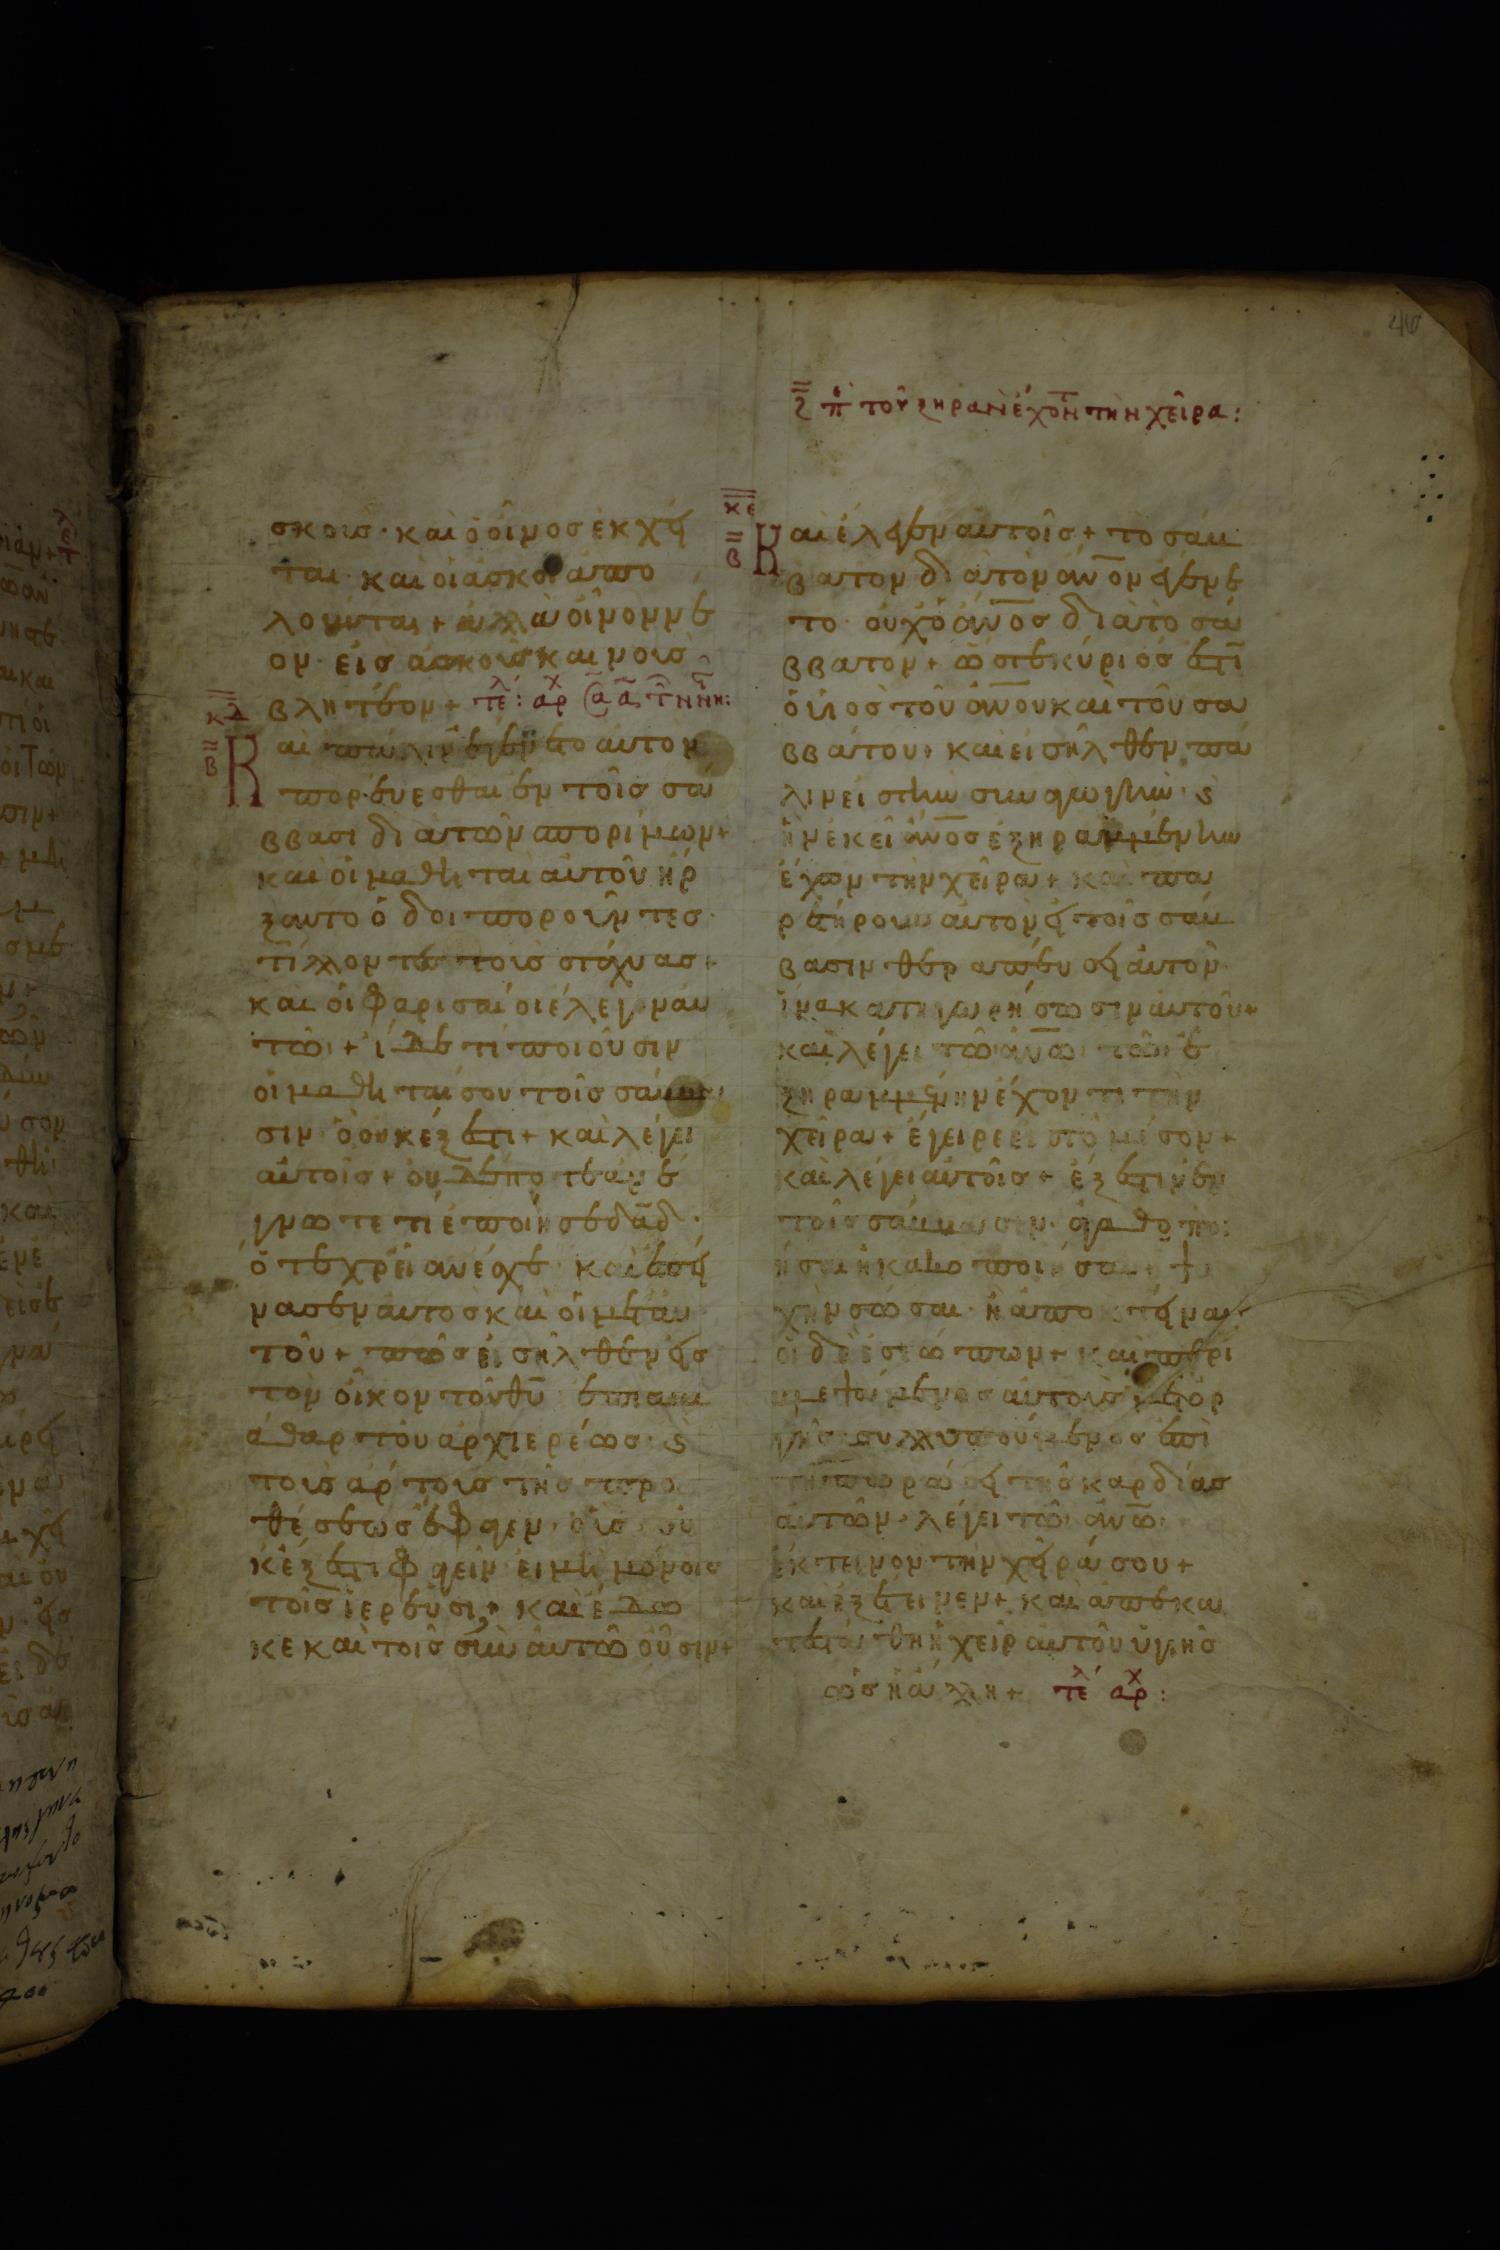 ϛ π τοῦ ξηρὰν ἔχοντ τὴν χεῖρα:
σκοὺσ· καὶ ὁ οἶνοσ ἐκχεῖ
ται· καὶ οἱ ἀσκοὶ ἀπο
λοῦνται + ἀλλὰ οἶνον νε
ον· εἰσ ἀσκοὺσ καινοὺσ
βλητέον + τελ: αρχ
κδ
β
Καὶ πάλιν ἐγένετο αὐτὸν
πορεύεσθαι ἐν τοῖσ σά
ββασι διὰ τῶν σπορίμων +
καὶ οἱ μαθηταὶ αὐτοῦ ἤρ
ξαντο ὁδοιποροῦντεσ·
τίλλοντεσ τοὺσ στάχυασ +
καὶ οἱ φαρισαῖοι ἔλεγον αὐ
τῶ + ἴδε τί ποιοῦσιν
οἱ μαθηταί σου τοῖσ σάββα
σιν· ὃ οὐκ έξεστι + καὶ λέγει
αὐτοῖσ + οὐδέποτε ἀνέ
γνωτε τί ἐποίησε δαδ·
ὅτε χρεῖαν ἔσχε· καὶ ἐπεί
νασεν αὐτὸσ καὶ οἱ μετ αὐ
τοῦ + πῶσ εἰσῆλθεν εἰσ
τὸν οἶκον τοῦ θυ ἐπὶ αβι
άθαρ τοῦ ἀρχιερέωσ· ϛ
τοὺσ ἄρτουσ τῆσ προ
θέσεωσ ἔφαγεν· οὓσ οὐ
κ ἔξεστι φαγεῖν· εἰ μὴ μόνοισ
τοῖσ ἱερεῦσι + καὶ ἔδω
κε καὶ τοῖσ σὺν αὐτῶ οὖσιν +
κε
β
Καὶ ἔλεγεν αὐτοῖσ + τὸ σάβ
βατον διὰ τὸν ανον ἐγένε
το· οὐχ ὁ ανοσ διὰ τὸ σά
ββατον + ὥστε κύριόσ ἐστι
ὁ υἱὸσ τοῦ ανου καὶ τοῦ σα
ββάτου· καὶ εἰσῆλθεν πά
λιν εἰσ τὴν συναγωγήν· ϛ
ἦν ἐκεῖ ανοσ ἐξηραμμένην
ἔχων τὴν χεῖρα + καὶ πα
ρετήρουν αὐτὸν εἰ τοῖσ σάβ
βασιν θεραπεύσει αὐτὸν·
ἵνα κατηγωρήσωσιν αὐτοῦ +
καὶ λέγει τῶ ανω τῶ
ξηραμμένην ἔχοντι τὴν
χεῖρα + ἔγειρε εἰσ τὸ μέσον +
καὶ λέγει αὐτοῖσ + ἔξεστιν ἐν
τοῖσ σάββασιν· ἀγαθοποι
ῆσαι ἢ κακοποιῆσαι + ψυ
χὴν σῶσαι· ἢ ἀποκτεῖναι·
οἱ δὲ ἐσιώπων + καὶ περι
βλεψάμενοσ αὐτοὺσ μετ ὀρ
γῆσ· συλλυπούμενοσ ἐπὶ
τῆ πωρώσει τῆσ καρδίασ
αὐτῶν· λέγει τῶ ανω·
ἔκτεινον τὴν χεῖρά σου +
καὶ ἐξέτεινεν + καὶ ἀπεκα
τεστάθη ἡ χεὶρ αὐτοῦ ὑγιὴσ
ὡσ ἡ ἄλλη + τελ αρχ: